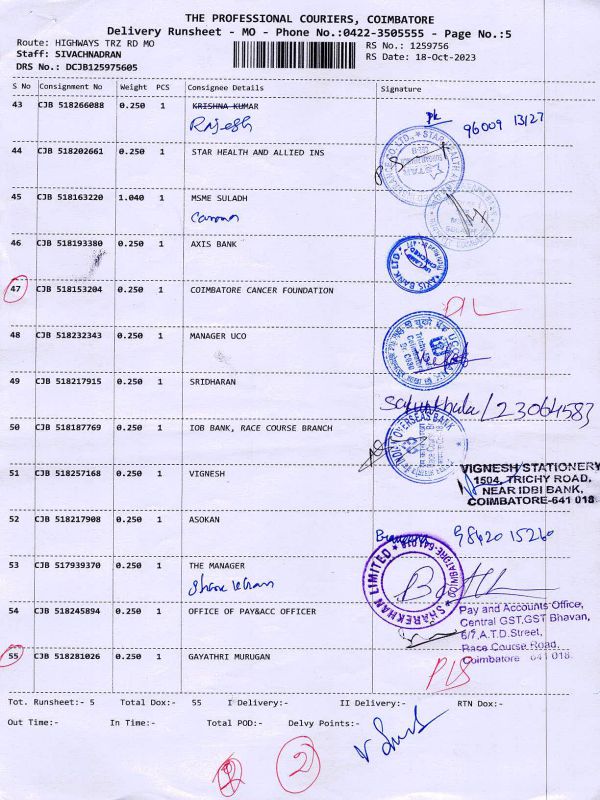 THE PROFESSIONAL COURIERS, COIMBATORE
Delivery Runsheet - MO - Phone No.:0422-3505555 - Page No.:5
Route: HIGHWAYS TRZ RD MO
RS No.: 1259756
Staff: SIVACHNADRAN
RS Date: 18-Oct-2023
DRS No.: DCJB125975605
S No Consignment No Weight PCS Consignee Details Signature
43 CJB 518266088 0.250 1 KRISHNA KUMAR
Rajesh
96009 13127
44 CJB 518202661 0.250 1 STAR HEALTH AND ALLIED INS
45 CJB 518163220 1.040 1 MSME SULADH
46 CJB 518193380 0.250 1 AXIS BANK
AXIS BANK LTD
47 CJB 518153204 0.250 1 COIMBATORE CANCER FOUNDATION
48 CJB 518232343 0.250 1 MANAGER UCO
49 CJB 518217915 0.250 1 SRIDHARAN
50 CJB 518187769 0.250 1 IOB BANK, RACE COURSE BRANCH
INDIAN OVERSEAS BANK
51 CJB 518257168 0.250 1 VIGNESH
VIGNESH STATIONERY
1504, TRICHY ROAD,
NEAR IDBI BANK,
COIMBATORE-641 018
52 CJB 518217908 0.250 1 ASOKAN
98420 15260
53 CJB 517939370 0.250 1 THE MANAGER
SHAREKHAN LIMITED
COIMBATORE-641 018
54 CJB 518245894 0.250 1 OFFICE OF PAY&ACC OFFICER
Pay and Accounts Office,
Central GST,GST Bhavan,
6/7,A.T.D.Street,
Race Course Road,
Coimbatore 641 018.
55 CJB 518281026 0.250 1 GAYATHRI MURUGAN
Tot. Runsheet:- 5 Total Dox:- 55 I Delivery:- II Delivery:- RTN Dox:-
Out Time:- In Time:- Total POD:- Delvy Points:-
2